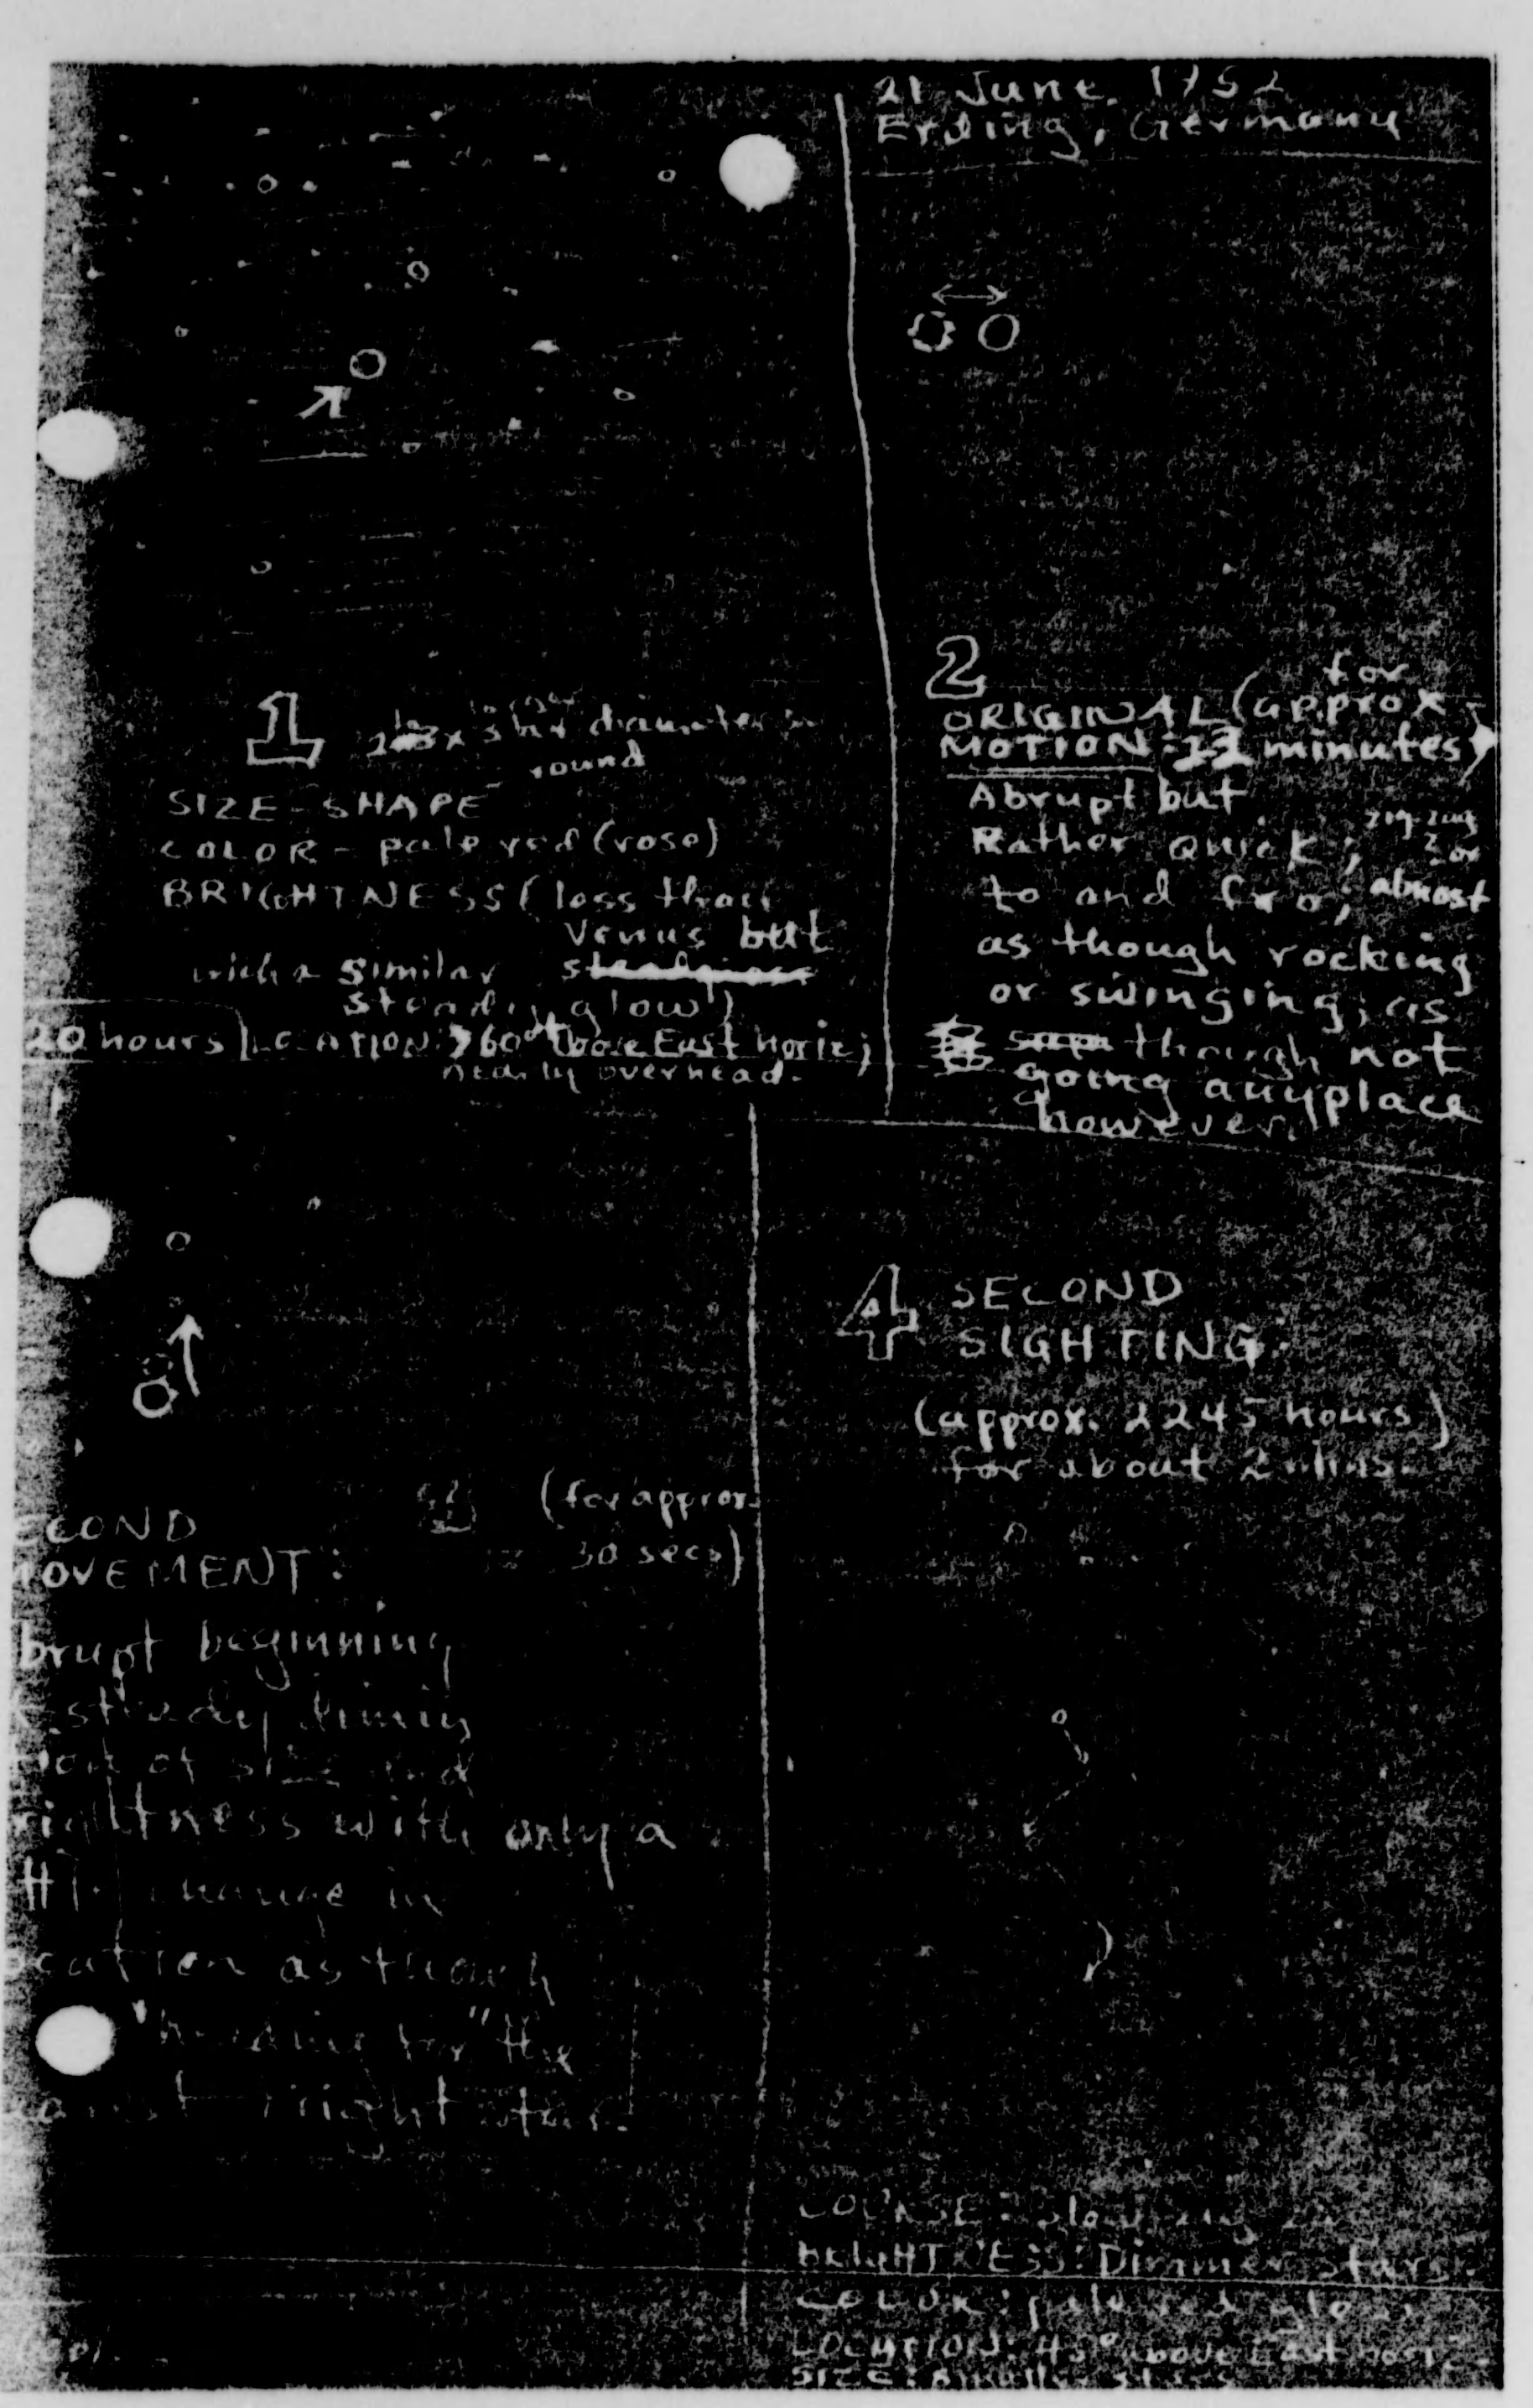 21 June 1952
Erding, Germany
1
larger
star diameter
round
SIZE - SHAPE
COLOR - pale red (rose)
BRIGHTNESS (less than
Venus but
with a similar
steady glow)
20 hours LOCATION: >60° above East horiz;
nearly overhead.
2
for
ORIGINAL (approx
MOTION: minutes)
Abrupt but
Rather quick; zig-zag
to and fro, or almost
as though rocking
or swinging; as
though not
going anyplace
however.
(for approx.
ECOND 30 secs)
OVEMENT:
brupt beginning
steady dimin
tion of size and
rightness with only a
change in
ocation as though
"heading for" the
bright star.
4 SECOND
SIGHTING:
(approx. 2245 hours)
for about 2 mins.
COURSE: slow zig
BRIGHTNESS: Dimmer stars.
COLOR: pale red glow
LOCATION: 45° above East horiz.
SIZE: smaller stars